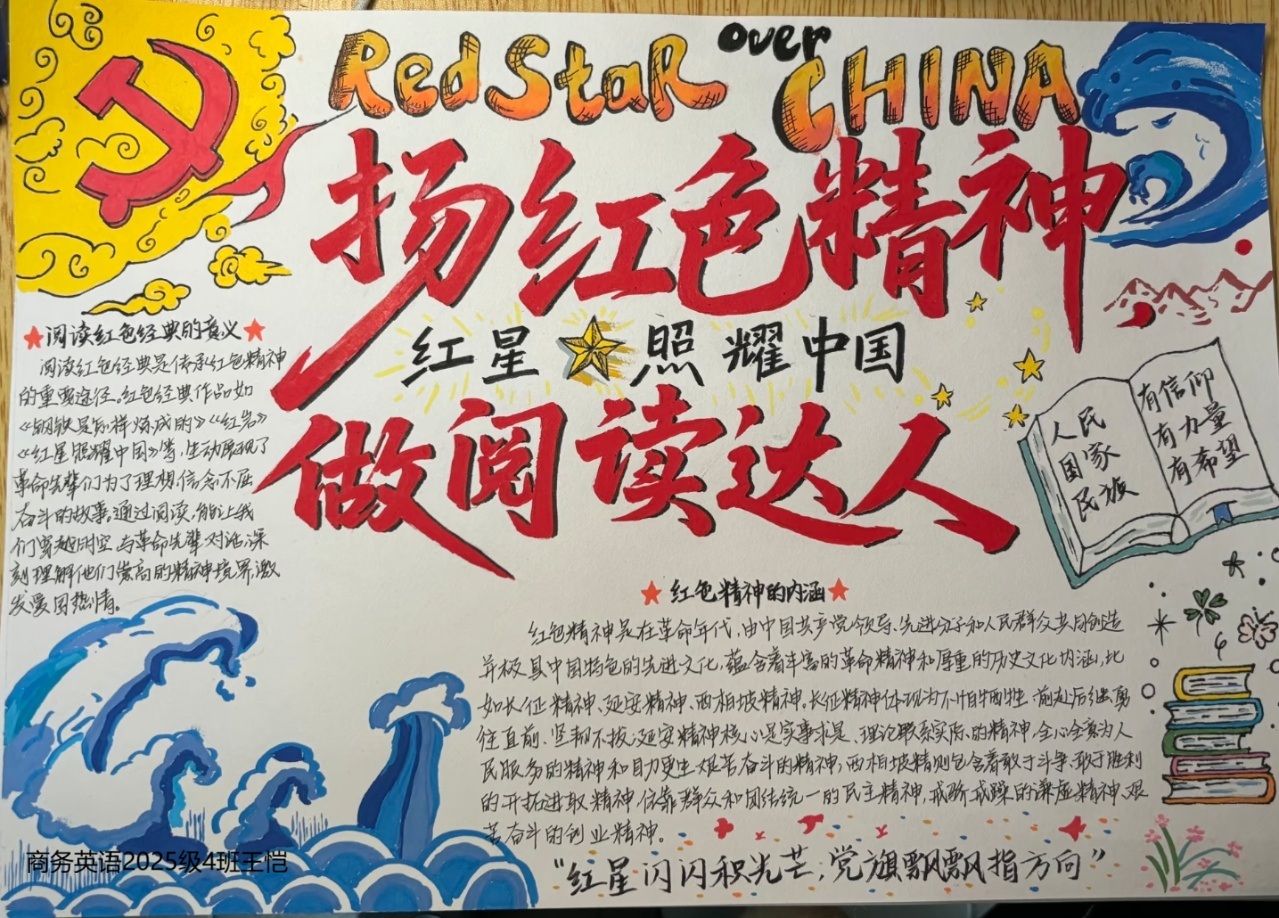 Red Star over CHINA
扬红色精神
红星照耀中国
做阅读达人
阅读红色经典的意义
阅读红色经典是传承红色精神
的重要途径。红色经典作品如
《钢铁是怎样炼成的》《红岩》
《红星照耀中国》等,生动展现了
革命先辈们为了理想信念不屈
奋斗的故事。通过阅读,能让我
们穿越时空与革命先辈对话,深
刻理解他们崇高的精神境界,激
发爱国热情。
人民
国家
民族
有信仰
有力量
有希望
红色精神的内涵
红色精神是在革命年代,由中国共产党领导、先进分子和人民群众共同创造
并极具中国特色的先进文化,蕴含着丰富的革命精神和厚重的历史文化内涵,比
如长征精神、延安精神、西柏坡精神。长征精神体现为不怕牺牲、前赴后继,勇
往直前、坚韧不拔;延安精神核心是实事求是、理论联系实际的精神,全心全意为人
民服务的精神和自力更生艰苦奋斗的精神;西柏坡精则包含着敢于斗争、敢于胜利
的开拓进取精神,依靠群众和团结统一的民主精神,戒骄戒躁的谦虚精神、艰
苦奋斗的创业精神。
“红星闪闪积光芒,党旗飘飘指方向”
商务英语2025级4班王恺